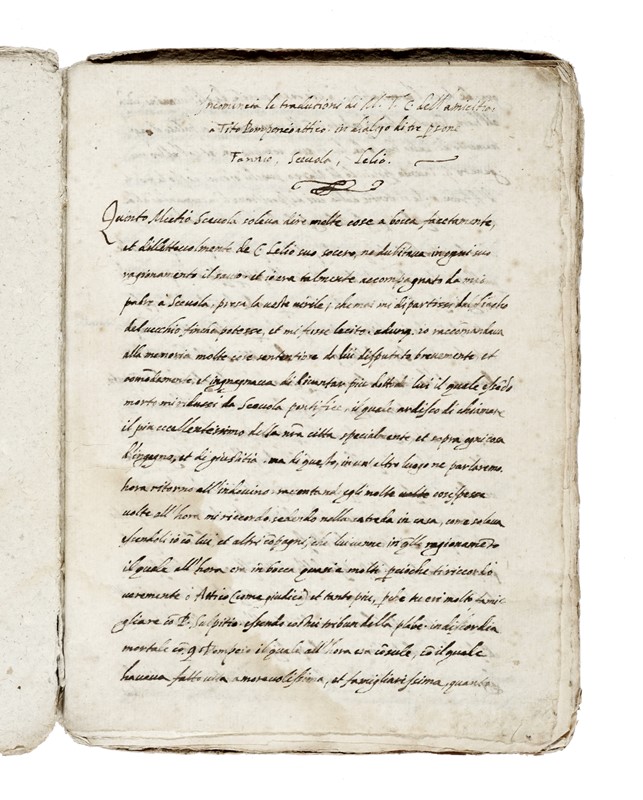 Incomincia le tradutioni di M. T. C. dell'amicitia
a Tito Pomponeo attico. in dialogo di tre p̱sone
Fannio, Sceuola, Lelio.
Quinto Mutio Sceuola soleua dire molte cose a bocca, facetamente,
et dilletteuolmente de C. Lelio suo socero, ne dubitaua in ogni suo
ragionamento il sauio: et io era talmente accompagnato da mio
padre a Sceuola, presa la ueste uirile; che mai mi dipartissi dal
del uecchio, fin che potesse, et mi fusse lecito. adunq. io raccomandaua
alla memoria molte cose sententiose da lui disputate breuemente et
comodamente, et ingegnaua di diuentar piu dotto di lui il quale essēdo
morto mi ridussi da Sceuola pontifice, il quale ardisco di chiamare
il piu eccellentissimo della nr̄a citta specialmente et sopra ogni cosa
d'Ingegno, et di giustitia. ma di questo, in un'altro luogo ne parlaremo.
hora ritorno all'indouino. molte spesse
uolte all'hora mi riccordo sedendo nella in casa, come soleua
essendoli io cō lui, et altri cōpagni, che lui uenne in q̄llo ragionamēto
il quale all'hora era in bocca quasi a molti perioche ti riccordi
ueramente ò Attico (come giudico) et tanto piu, p̱che tu eri molto famig
gliare cō P. Sulpitio. essendo costui tribun della plebe. in discordia
mortale cō q. Pompeio il quale all'hora era cōsule, cō il quale
haueua fatto uita amoreuolissima, et famigliarissima, quanta